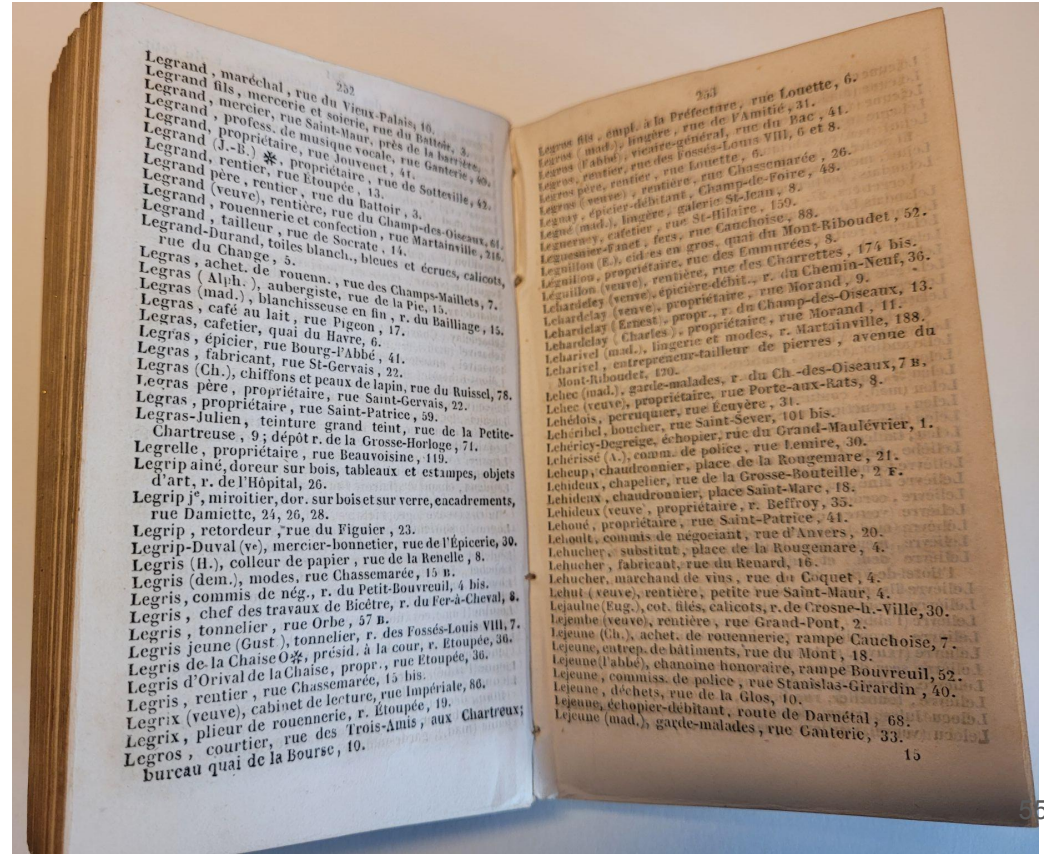 252
Legrand, maréchal, rue du Vieux-Palais, 10.
Legrand fils, mercerie et soierie, rue du Battoir, 3.
Legrand, mercier, rue Saint-Maur, près de la barrière.
Legrand, profess. de musique vocale, rue Ganterie, 49.
Legrand, propriétaire, rue Jouvenet, 41.
Legrand (J.-B.) ❋, propriétaire, rue de Sotteville, 42.
Legrand, rentier, rue Étoupée, 13.
Legrand père, rentier, rue du Battoir, 3.
Legrand (veuve), rentière, rue du Champ-des-Oiseaux, 61.
Legrand, rouennerie et confection, rue Martainville, 216.
Legrand, tailleur, rue de Socrate, 14.
Legrand-Durand, toiles blanch., bleues et écrues, calicots,
rue du Change, 5.
Legras, achet. de rouenn., rue des Champs-Maillets, 7.
Legras (Alph.), aubergiste, rue de la Pie, 15.
Legras (mad.), blanchisseuse en fin, r. du Bailliage, 15.
Legras, café au lait, rue Pigeon, 17.
Legras, cafetier, quai du Havre, 6.
Legras, épicier, rue Bourg-l'Abbé, 41.
Legras, fabricant, rue St-Gervais, 22.
Legras (Ch.), chiffons et peaux de lapin, rue du Ruissel, 78.
Legras père, propriétaire, rue Saint-Gervais, 22.
Legras, propriétaire, rue Saint-Patrice, 59.
Legras-Julien, teinture grand teint, rue de la Petite-
Chartreuse, 9; dépôt r. de la Grosse-Horloge, 71.
Legrelle, propriétaire, rue Beauvoisine, 119.
Legrip ainé, doreur sur bois, tableaux et estampes, objets
d'art, r. de l'Hôpital, 26.
Legrip je, miroitier, dor. sur bois et sur verre, eacadrements,
rue Damiette, 24, 26, 28.
Legrip, retordeur, rue du Figuier, 23.
Legrip-Duval (ve), mercier-bonnetier, rue de l'Épicerie, 30.
Legris (H.), colleur de papier, rue de la Renelle, 8.
Legris (dem.), modes, rue Chassemarée, 15 B.
Legris, commis de nég., r. du Petit-Bouvreuil, 4 bis.
Legris, chef des travaux de Bicêtre, r. du Fer-à-Cheval, 8.
Legris, tonnelier, rue Orbe, 57 B.
Legris jeune (Gust), tonnelier, r. des Fossés-Louis VIII, 7.
Legris de la Chaise O❋, présid. à la cour, r. Étoupée, 36.
Legris d'Orival de la Chaise, propr., rue Etoupée, 36.
Legris, rentier, rue Chassemarée, 15 bis.
Legrix (veuve), cabinet de lecture, rue Impériale, 86.
Legrix, plieur de rouennerie, r. Étoupée, 19.
Legros, courtier, rue des Trois-Amis, aux Chartreux;
bureau quai de la Bourse, 10.
253
Legros fils, empl. à la Préfecture, rue Louette, 6.
Legros (mad.), lingère, rue de l'Amitié, 31.
Legros (l'abbé), vicaire-général, rue du Bac, 41.
Legros, rentier, rue des Fossés-Louis VIII, 6 et 8.
Legros père, rentier, rue Louette, 6.
Legros (veuve), rentière, rue Chassemarée, 26.
Legnay, épicier-débitant, Champ-de-Foire, 48.
Legué (mad.), lingère, galerie St-Jean, 8.
Leguerney, cafetier, rue St-Hilaire, 159.
Leguesnier-Fanet, fers, rue Cauchoise, 88.
Leguillon (E.), cidres en gros, quai du Mont-Riboudet, 52.
Léguillon, propriétaire, rue des Emmurées, 8.
Léguillon (veuve), rentière, rue des Charrettes, 174 bis.
Lehardeley (veuve), épicière-débit., r. du Chemin-Neuf, 36.
Lehardelay (veuve), propriétaire, rue Morand, 9.
Lehardelay (Ernest), propr., r. du Champ-des-Oiseaux, 13.
Lehardelay (Charles), propriétaire, rue Morand, 11.
Leharivel (mad.), lingerie et modes, r. Martainville, 188.
Leharivel, entrepreneur-tailleur de pierres, avenue du
Mont-Riboudet, 120.
Lehec (mad.), garde-malades, r. du Ch.-des-Oiseaux, 7 B,
Lehec (veuve), propriétaire, rue Porte-aux-Rats, 8.
Lehédois, perruquier, rue Écuyère, 31.
Lehéribel, boucher, rue Saint-Sever, 101 bis.
Lehéricy-Degreige, échopier, rue du Grand-Maulévrier, 1.
Lehérissé (A.), comm. de police, rue Lemire, 30.
Leheup, chaudronnier, place de la Rougemare, 21.
Lehideux, chapelier, rue de la Grosse-Bouteille, 2 F.
Lehideux, chaudronnier, place Saint-Marc, 18.
Lehideux (veuve, propriétaire, r. Beffroy, 35.
Lehoué, propriétaire, rue Saint-Patrice, 41.
Lehoult, commis de négociant, rue d'Anvers, 20.
Lehucher, substitut, place de la Rougemare, 4.
Lehucher, fabricant, rue du Renard, 16.
Lehucher, marchand de vins, rue du Coquet, 4.
Lehut (veuve), rentière, petite rue Saint-Maur, 4.
Lejaulne (Eug.), cot. filés, calicots, r. de Crosne-h.-Ville, 30.
Lejembe (veuve), rentière, rue Grand-Pont, 2.
Lejeune (Ch.), achet. de rouennerie, rampe Cauchoise, 7.
Lejeune, entrep. de bâtiments, rue du Mont, 18.
Lejeune (l'abbé), chanoine honoraire, rampe Bouvreuil, 52.
Lejeune, commiss. de police, rue Stanislas-Girardin, 40.
Lejeune, déchets, rue de la Glos, 10.
Lejeune, échopier-débitant, route de Darnétal, 68.
Lejeune (mad.), garde-malades, rue Ganterie, 33.
15